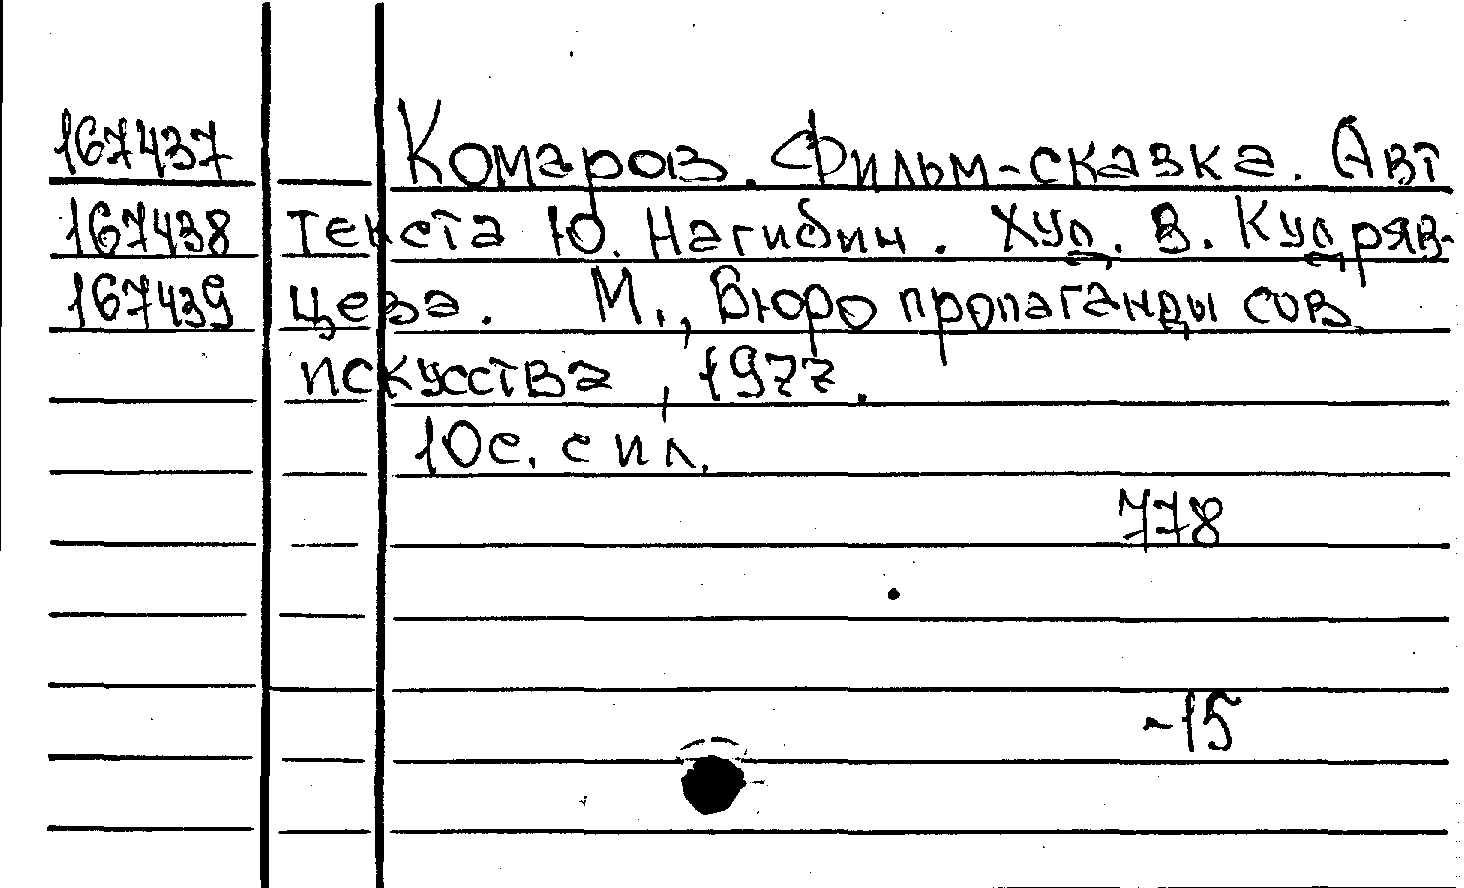 167437 Комаров. Фильм-сказка. Авт
167438 текста Ю. Нагибин. Худ. В. Кудряв-
167439 цева. М., Бюро пропаганды сов.
искусства, 1977.
10с. с ил.
778
-15